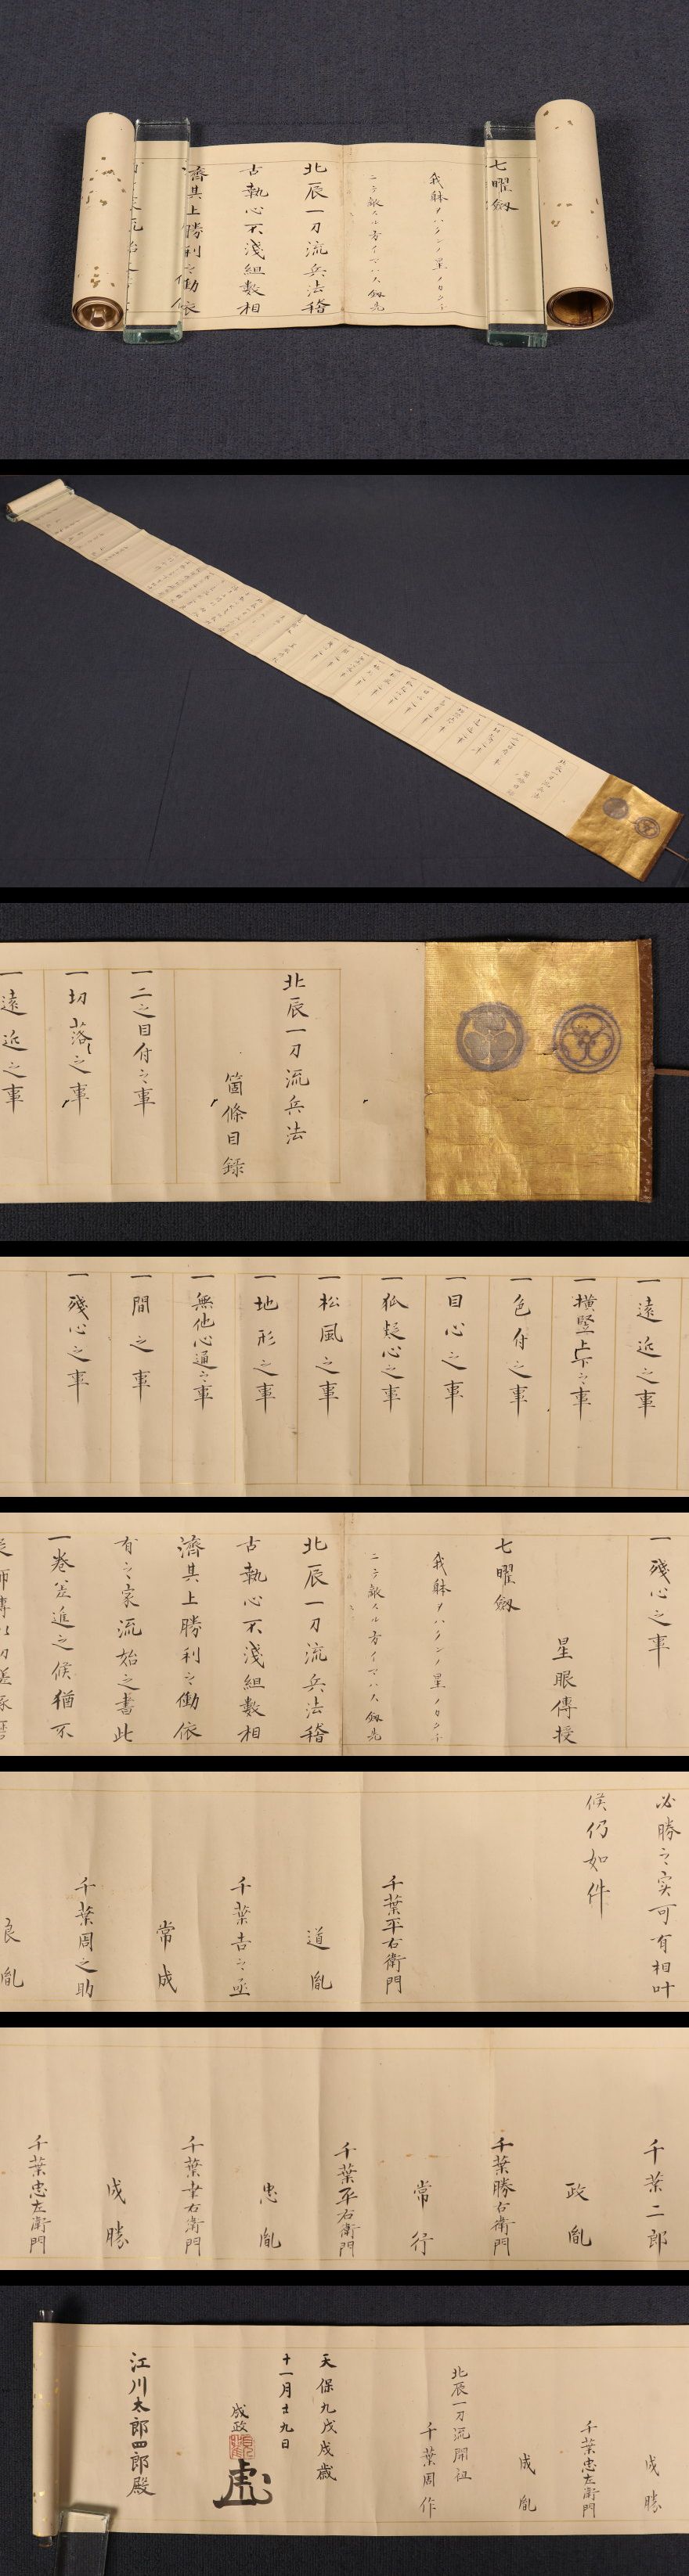 七曜劔
我躰ヲハクンノ星ノカタチ
ニテ敵ヘル方イツマハス劔先
北辰一刀流兵法稽
古執心不淺組數相
濟其上勝利之働依
北辰一刀流兵法
箇條目録
一二之目付之事
一切落之事
一遠近之事
一遠近之事
一横竪上下之事
一色付之事
一目心之事
一狐疑心之事
一松風之事
一地形之事
一無他心通之事
一間之事
一殘心之事
一殘心之事
星眼傳授
七曜劔
北辰一刀流兵法稽
古執心不淺組數相
濟其上勝利之働依
有之家流始之書此
一巻差進之候猶不
必勝之実可有相叶
候仍如件
千葉平右衛門
道胤
千葉吉之丞
常成
千葉周之助
良胤
千葉二郎
政胤
千葉勝右衛門
常行
千葉平右衛門
忠胤
千葉幸右衛門
成勝
千葉忠左衛門
成勝
千葉忠左衛門
成胤
北辰一刀流開祖
千葉周作
天保九戊戌歳
十一月十九日
成政
虎
江川太郎四郎殿